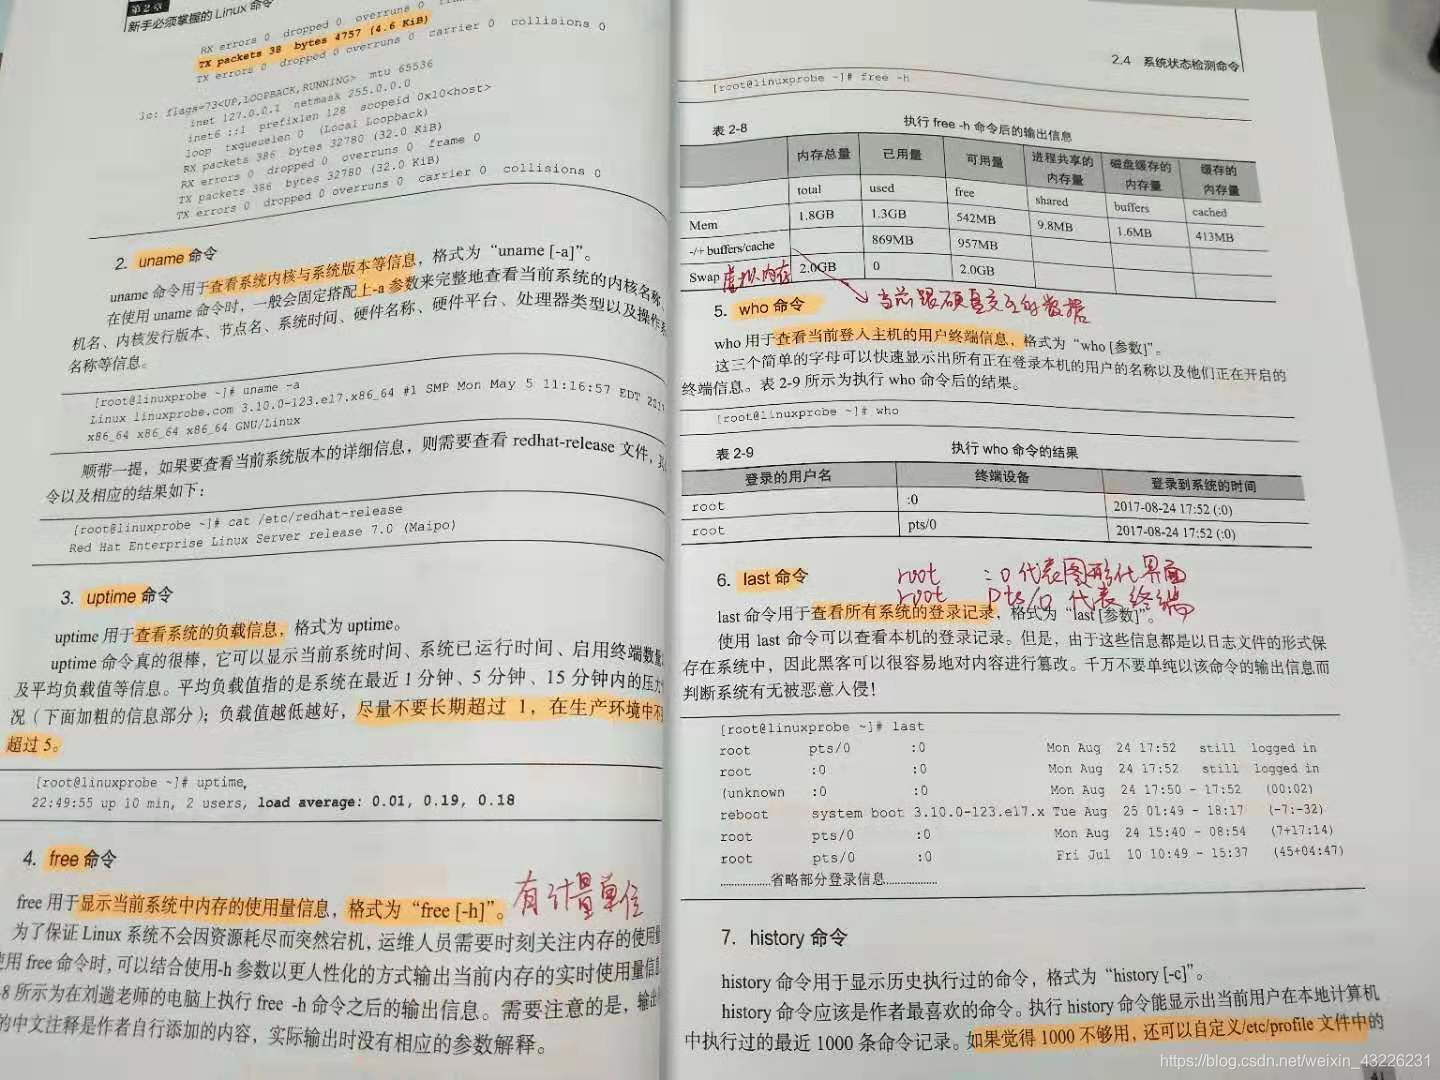 第2章
新手必须掌握的 Linux 命令
RX errors 0 dropped 0 overruns 0
TX packets 38 bytes 4757 (4.6 KiB)
TX errors 0 dropped 0 overruns 0 carrier 0 collisions 0
lo: flags=73<UP,LOOPBACK,RUNNING> mtu 65536
inet 127.0.0.1 netmask 255.0.0.0
inet6 ::1 prefixlen 128 scopeid 0x10<host>
loop txqueuelen 0 (Local Loopback)
RX packets 386 bytes 32780 (32.0 KiB)
RX errors 0 dropped 0 overruns 0 frame 0
TX packets 386 bytes 32780 (32.0 KiB)
TX errors 0 dropped 0 overruns 0 carrier 0 collisions 0
2. uname 命令
uname 命令用于查看系统内核与系统版本等信息，格式为“uname [-a]”。
在使用 uname 命令时，一般会固定搭配上-a 参数来完整地查看当前系统的内核名称、
机名、内核发行版本、节点名、系统时间、硬件名称、硬件平台、处理器类型以及操作
名称等信息。
[root@linuxprobe ~]# uname -a
Linux linuxprobe.com 3.10.0-123.el7.x86_64 #1 SMP Mon May 5 11:16:57 EDT
x86_64 x86_64 x86_64 GNU/Linux
顺带一提，如果要查看当前系统版本的详细信息，则需要查看 redhat-release 文件，
令以及相应的结果如下：
[root@linuxprobe ~]# cat /etc/redhat-release
Red Hat Enterprise Linux Server release 7.0 (Maipo)
3. uptime 命令
uptime 用于查看系统的负载信息，格式为 uptime。
uptime 命令真的很棒，它可以显示当前系统时间、系统已运行时间、启用终端数量
及平均负载值等信息。平均负载值指的是系统在最近 1 分钟、5 分钟、15 分钟内的压力
况（下面加粗的信息部分）；负载值越低越好，尽量不要长期超过 1，在生产环境中不
超过 5。
[root@linuxprobe ~]# uptime
22:49:55 up 10 min, 2 users, load average: 0.01, 0.19, 0.18
4. free 命令
free 用于显示当前系统中内存的使用量信息，格式为“free [-h]”。 有计量单位
为了保证 Linux 系统不会因资源耗尽而突然宕机，运维人员需要时刻关注内存的使用量
使用 free 命令时，可以结合使用-h 参数以更人性化的方式输出当前内存的实时使用量信息
-8 所示为在刘遄老师的电脑上执行 free -h 命令之后的输出信息。需要注意的是，输出
的中文注释是作者自行添加的内容，实际输出时没有相应的参数解释。
2.4 系统状态检测命令
[root@linuxprobe ~]# free -h
表 2-8 执行 free -h 命令后的输出信息
内存总量 已用量 可用量 进程共享的内存量 磁盘缓存的内存量 缓存的内存量
total used free shared buffers cached
Mem 1.8GB 1.3GB 542MB 9.8MB 1.6MB 413MB
-/+ buffers/cache 869MB 957MB
Swap 虚拟内存 2.0GB 0 2.0GB
当前跟硬盘交互的数据
5. who 命令
who 用于查看当前登入主机的用户终端信息，格式为“who [参数]”。
这三个简单的字母可以快速显示出所有正在登录本机的用户的名称以及他们正在开启的
终端信息。表 2-9 所示为执行 who 命令后的结果。
[root@linuxprobe ~]# who
表 2-9 执行 who 命令的结果
登录的用户名 终端设备 登录到系统的时间
root :0 2017-08-24 17:52 (:0)
root pts/0 2017-08-24 17:52 (:0)
6. last 命令
root :0 代表图形化界面
root pts/0 代表 终端
last 命令用于查看所有系统的登录记录，格式为“last [参数]”。
使用 last 命令可以查看本机的登录记录。但是，由于这些信息都是以日志文件的形式保
存在系统中，因此黑客可以很容易地对内容进行篡改。千万不要单纯以该命令的输出信息而
判断系统有无被恶意入侵！
[root@linuxprobe ~]# last
root pts/0 :0 Mon Aug 24 17:52 still logged in
root :0 :0 Mon Aug 24 17:52 still logged in
(unknown :0 :0 Mon Aug 24 17:50 - 17:52 (00:02)
reboot system boot 3.10.0-123.el7.x Tue Aug 25 01:49 - 18:17 (-7:-32)
root pts/0 :0 Mon Aug 24 15:40 - 08:54 (7+17:14)
root pts/0 :0 Fri Jul 10 10:49 - 15:37 (45+04:47)
..................省略部分登录信息..................
7. history 命令
history 命令用于显示历史执行过的命令，格式为“history [-c]”。
history 命令应该是作者最喜欢的命令。执行 history 命令能显示出当前用户在本地计算机
中执行过的最近 1000 条命令记录。如果觉得 1000 不够用，还可以自定义/etc/profile 文件中的
https://blog.csdn.net/weixin_43226231